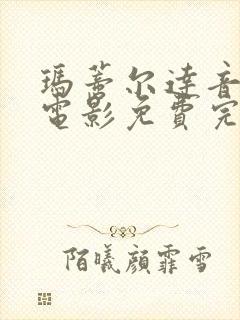 瑪蒂尔達音
電影免費完
陌曦顔霏雪